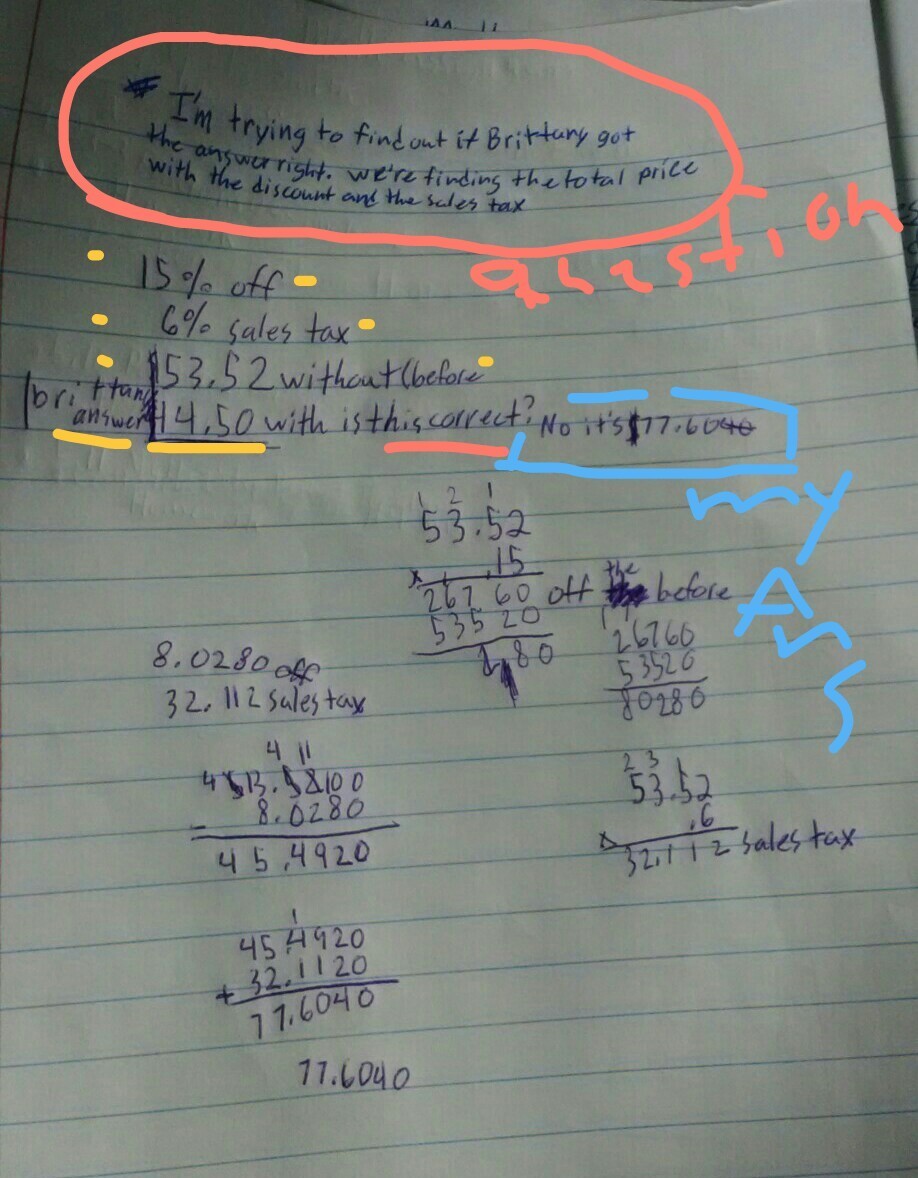 * I'm trying to find out if Brittany got
the answer right. we're finding the total price
with the discount and the sales tax
question
15% off
6% sales tax
$53.52 without (before
brittany answer $14.50 with is this correct? No it's $77.6040
my Ans
1 2 1
53.52
x .15
267 60 off the before
535 20
80
1 1
26760
53520
80280
8.0280 off
32.112 sales tax
4 11
4 13. 100
- 8.0280
45.4920
2 3 1
53.52
x .6
32.112 sales tax
1
45.4920
+ 32.1120
77.6040
77.6040